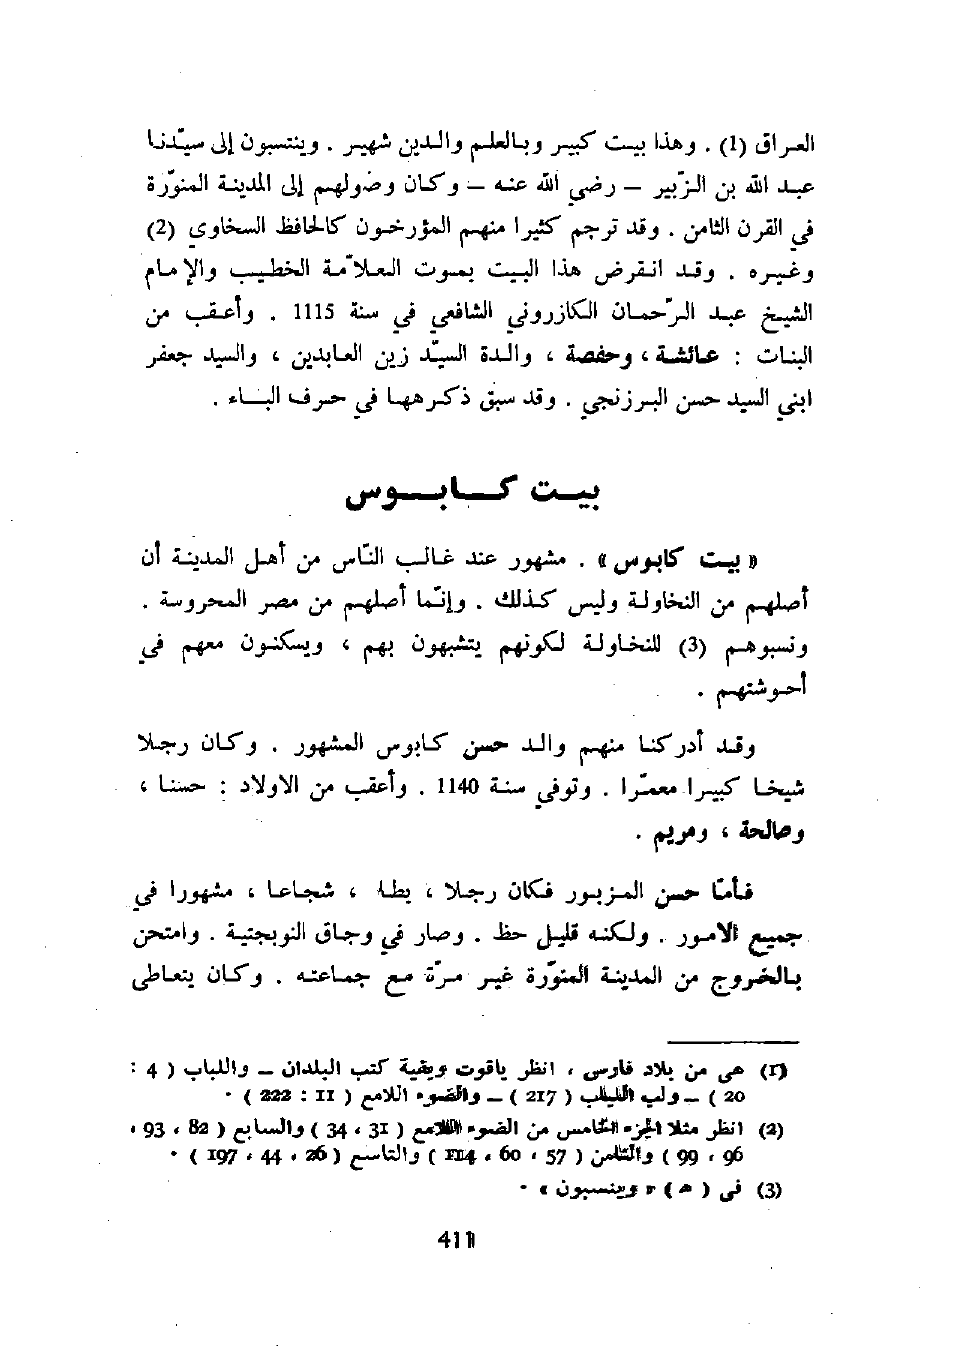 العراق (1) . وهذا بيت كبير وبالعلم والدين شهير . وينتسبون إلى سيّدنا
عبد الله بن الزّبير — رضي الله عنه — وكان وصولهم إلى المدينة المنوّرة
في القرن الثامن . وقد ترجم كثيرا منهم المؤرخون كالحافظ السخاوي (2)
وغيره . وقد انقرض هذا البيت بموت العلاّمة الخطيب والإمام
الشيخ عبد الرّحمان الكازروني الشافعي في سنة 1115 . وأعقب من
البنات : عائشة ، وحفصة ، والدة السيّد زين العابدين ، والسيد جعفر
ابني السيد حسن البرزنجي . وقد سبق ذكرهها في حرف الباء .
بيت كابوس
« بيت كابوس » . مشهور عند غالب النّاس من أهل المدينة أن
أصلهم من النخاولة وليس كذلك . وإنّما أصلهم من مصر المحروسة .
ونسبوهم (3) للنخاولة لكونهم يتشبهون بهم ، ويسكنون معهم في
أحوشتهم .
وقد أدركنا منهم والد حسن كابوس المشهور . وكان رجلا
شيخا كبيرا معمّرا . وتوفي سنة 1140 . وأعقب من الاولاد : حسنا ،
وصالحة ، ومريم .
فأمّا حسن المزبور فكان رجلا ، بطلا ، شجاعا ، مشهورا في
جميع الامور . ولكنه قليل حظ . وصار في وجاق النوبجتية . وامتحن
بالخروج من المدينة المنوّرة غير مرّة مع جماعته . وكان يتعاطى
(1) هي من بلاد فارس ، انظر ياقوت وبقية كتب البلدان — واللباب ( 4 :
20 ) — ولب اللباب ( 217 ) — والضوء اللامع ( 11 : 222 ) .
(2) انظر مثلا الجزء الخامس من الضوء اللامع ( 31 ، 34 ) والسابع ( 82 ، 93 ،
96 ، 99 ) والثامن ( 57 ، 60 ، 114 ) والتاسع ( 26 ، 44 ، 197 ) .
(3) في ( ه ) « وينسبون » .
411